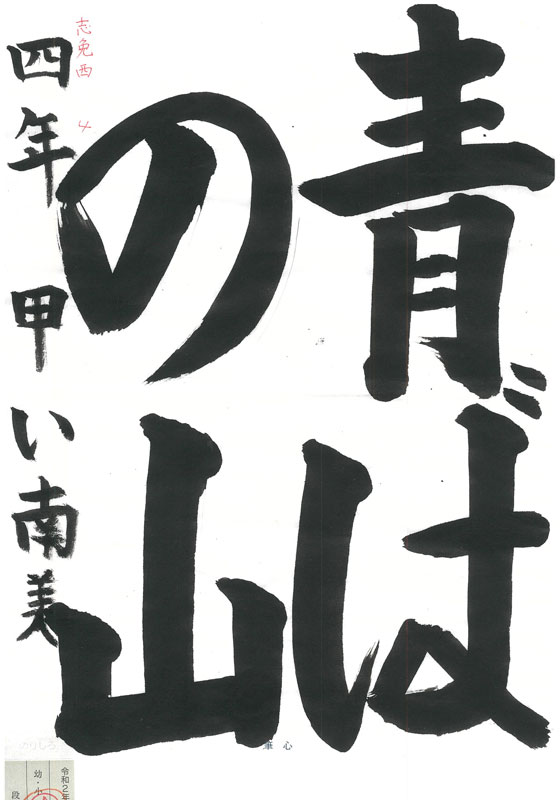 青ば
の山
四年 甲い南美
志免西 4
筆心
令和2年
幼・小
段